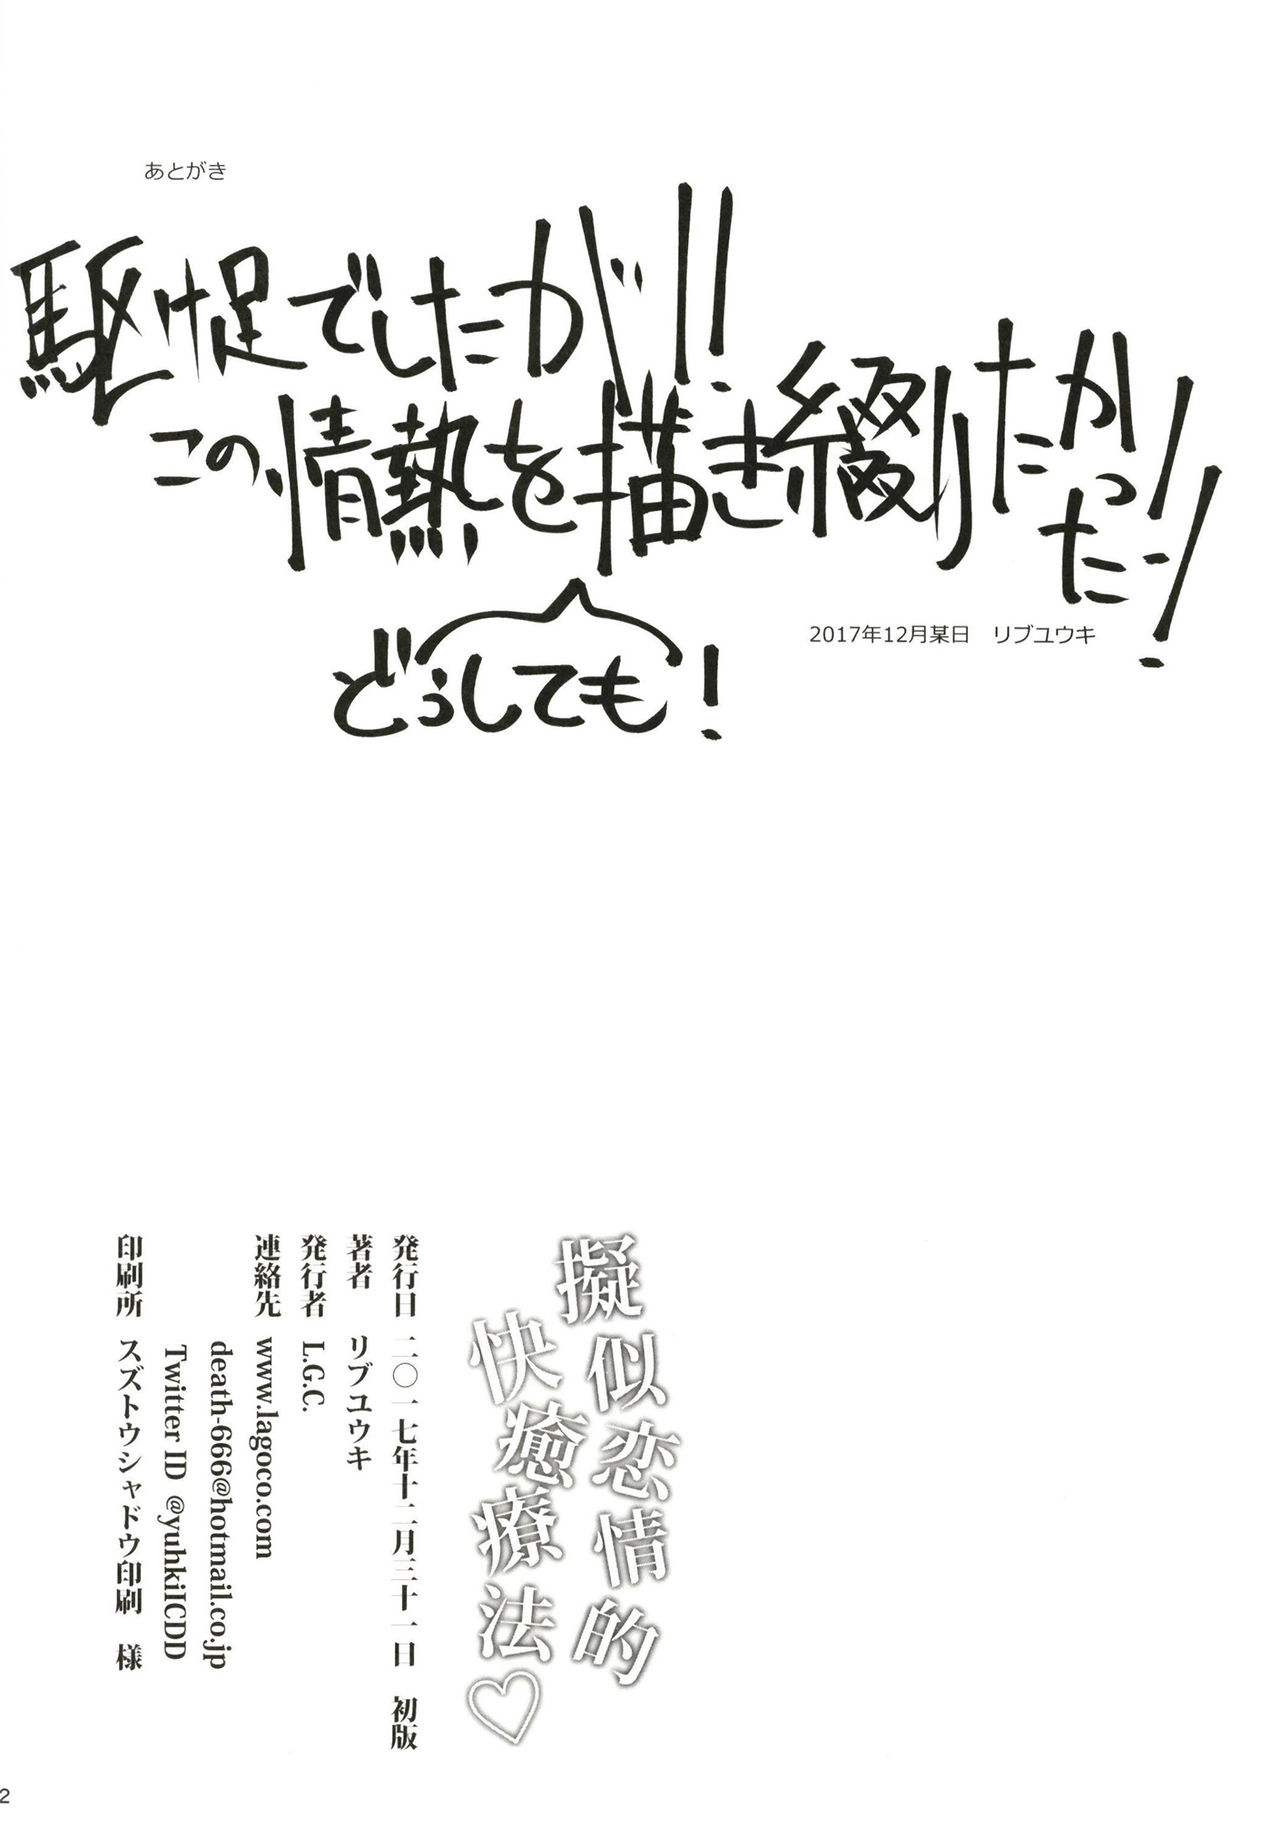 あとがき
駆け足でしたが!!
この情熱を描き綴りたかったー!!
どぅしても!
2017年12月某日　リブユウキ
擬似恋情的
快癒療法♡
発行日 二〇一七年十二月三十一日 初版
著者 リブユウキ
発行者 L.G.C.
連絡先 www.lagoco.com
death-666@hotmail.co.jp
Twitter ID @yuhkiICDD
印刷所 スズトウシャドウ印刷 様
2